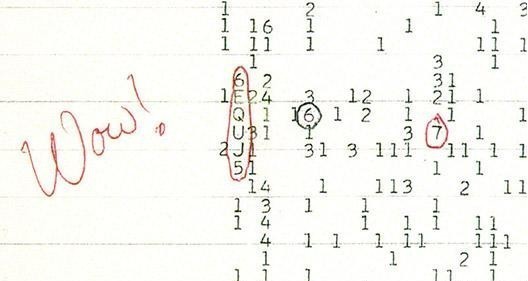 1 2 1 4 3
1 16 1 1 1
1 11 1 1 11 1
1 3 1
6 2 31
1 E24 3 12 1 21 1
Wow!
Q 1 16 1 2 1 1 1
U31 1 3 7
2J1 31 3 111 11 1 1
51 1 1
14 1 113 2 11
1 3 1 1
1 4 1 1 1 11
4 1 1 11 1 111
1 1 2 1
1 1 1 11 1